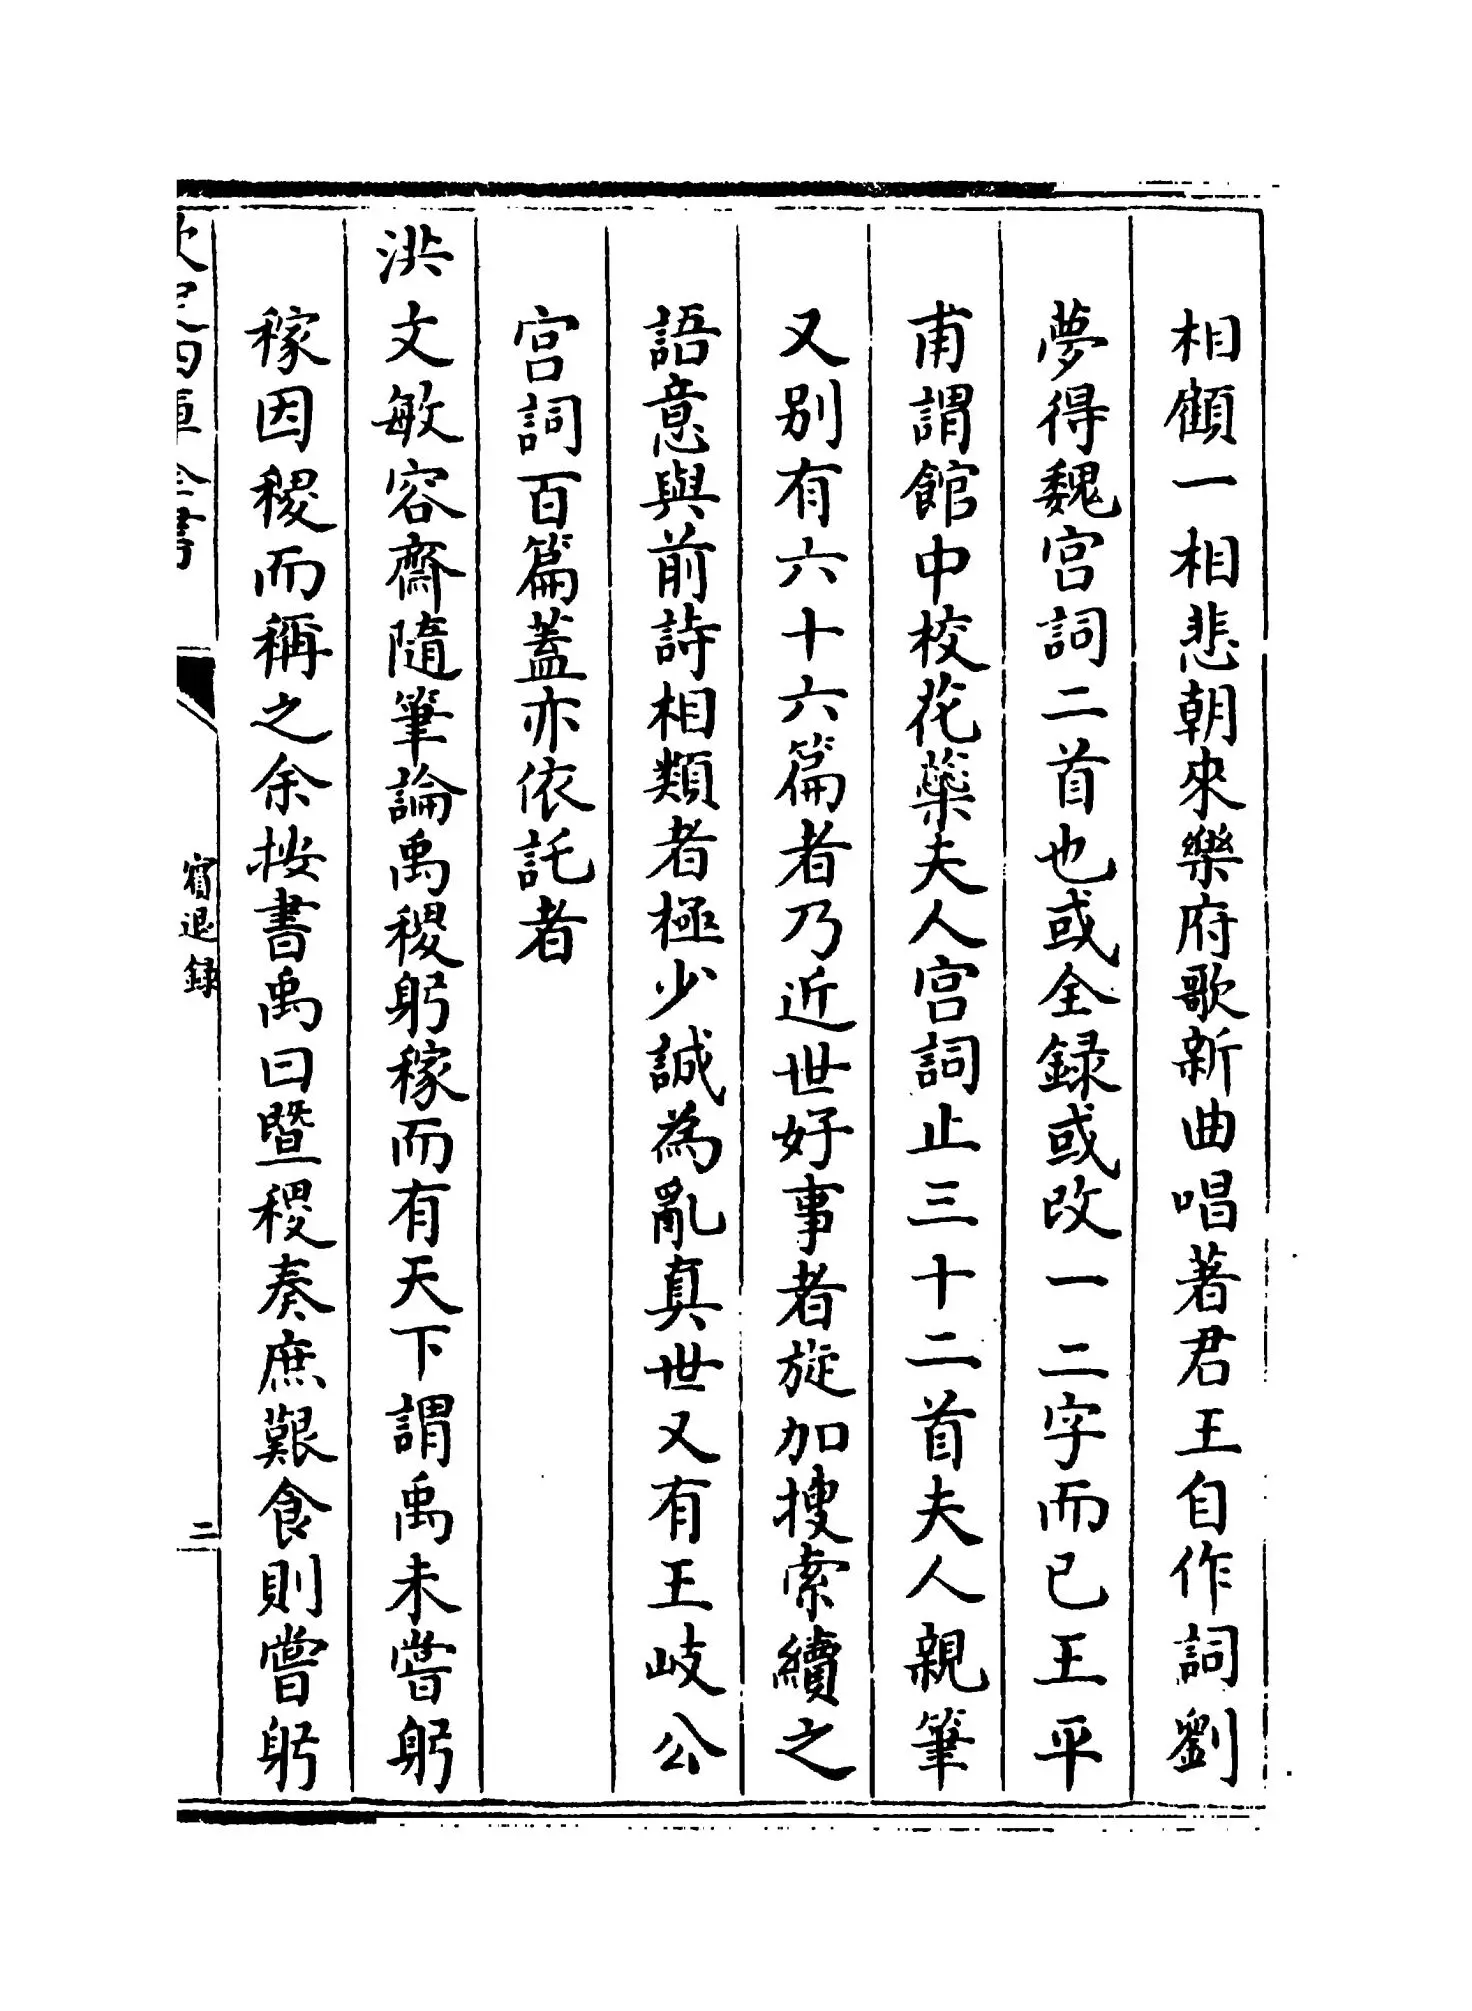 相顧一相悲朝來樂府歌新曲唱著君王自作詞劉
夢得魏宫詞二首也或全録或改一二字而已王平
甫謂館中校花蘂夫人宫詞止三十二首夫人親筆
又别有六十六篇者乃近世好事者旋加搜索續之
語意與前詩相類者極少誠為亂真世又有王岐公
宫詞百篇蓋亦依託者
洪文敏容齋隨筆論禹稷躬稼而有天下謂禹未嘗躬
稼因稷而稱之余按書禹曰暨稷奏庶艱食則嘗躬
欽定四庫全書
賓退録
二